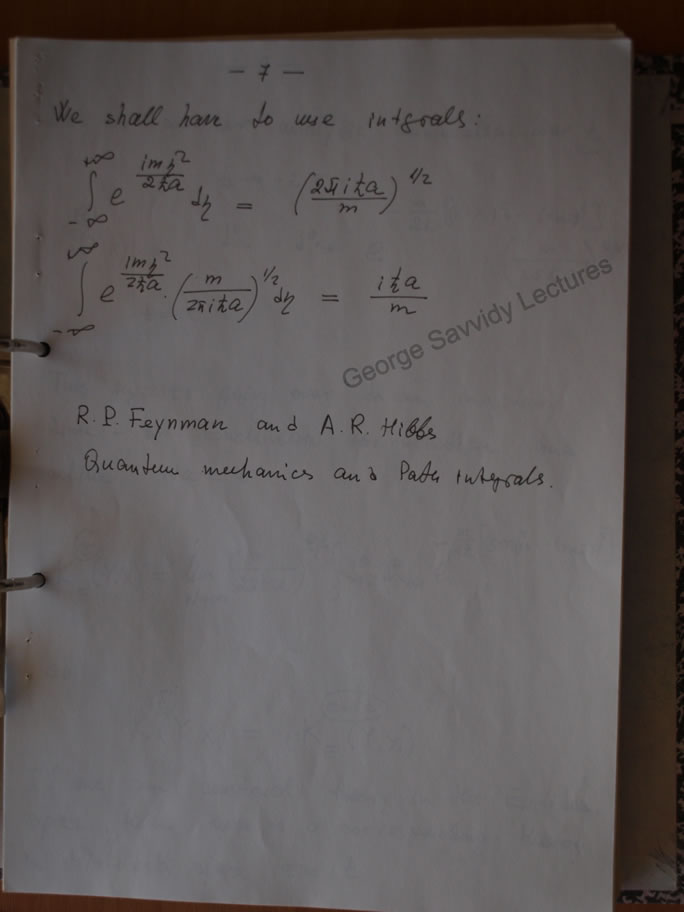 — 7 —
We shall have to use intgrals:
∫_{-∞}^{+∞} e^{imη²/2ħa} dη = (2πiħa/m)^{1/2}
∫_{-∞}^{+∞} e^{imη²/2ħa} · (m/2πiħa)^{1/2} dη = iħa/m
George Savvidy Lectures
R. P. Feynman and A. R. Hibbs
Quantum mechanics and Path integrals.